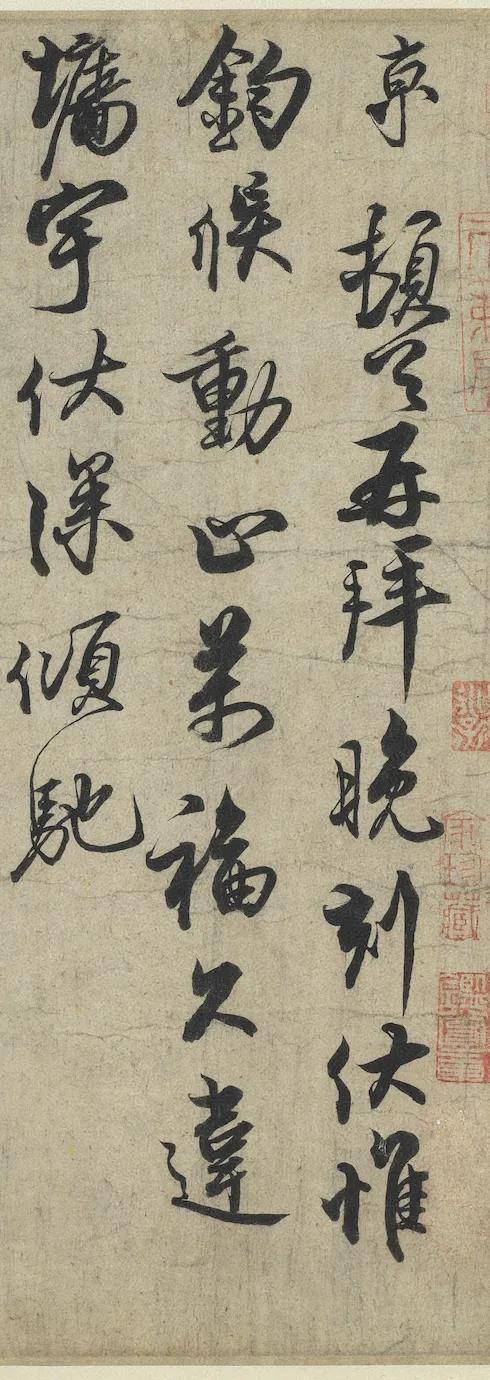 京 頓首再拜晚刻伏惟
鈞候動止萬福久違
墻宇伏深傾馳